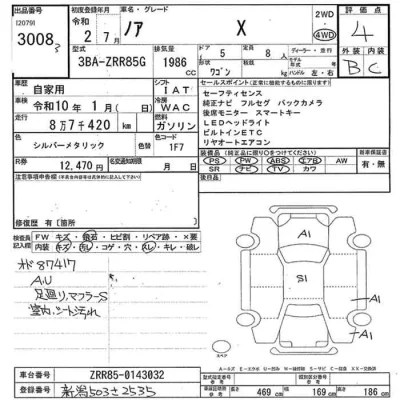 出品番号 初度登録年月 車名・グレード 2WD 評価点
[2079] 令和 2年 7月 ノア X 4WD 4
3008
型式 排気量 ドア 定員 ディーラー・並行 外装 内装
3BA-ZRR85G 1986 CC 5 8人 B C
形状 ワゴン ハンドル 左・右
車歴 自家用 シフト IAT
セールスポイント
セーフティセンス
車検 令和10年 1月(日) 冷房 WAC
純正ナビ フルセグ バックカメラ
後席モニター スマートキー
走行 8万7千420km 燃料 ガソリン
LEDヘッドライト
ビルトインETC
リヤオートエアコン
色 シルバーメタリック 色替 カラーNo. 1F7
装備品
PS PW ABS エアB AW
SR ナビ TV カワ
有・無
R 12,470円 名変期限 月 日
注意事項申告欄 後日部品
修復歴 有 [箇所 ]
FW キズ・飛石・ヒビ割・リペア跡・×要
内装 キズ・汚れ・コゲ・穴・スレ・キレ・破れ
87417
AU
足廻り、マフラーS
室内、シート汚れ
A1
S1
A1
A1
スペア
車台番号 ZRR85-0143032
登録番号 新潟503さ2535
長さ 469 cm 幅 169 cm 高さ 186 cm